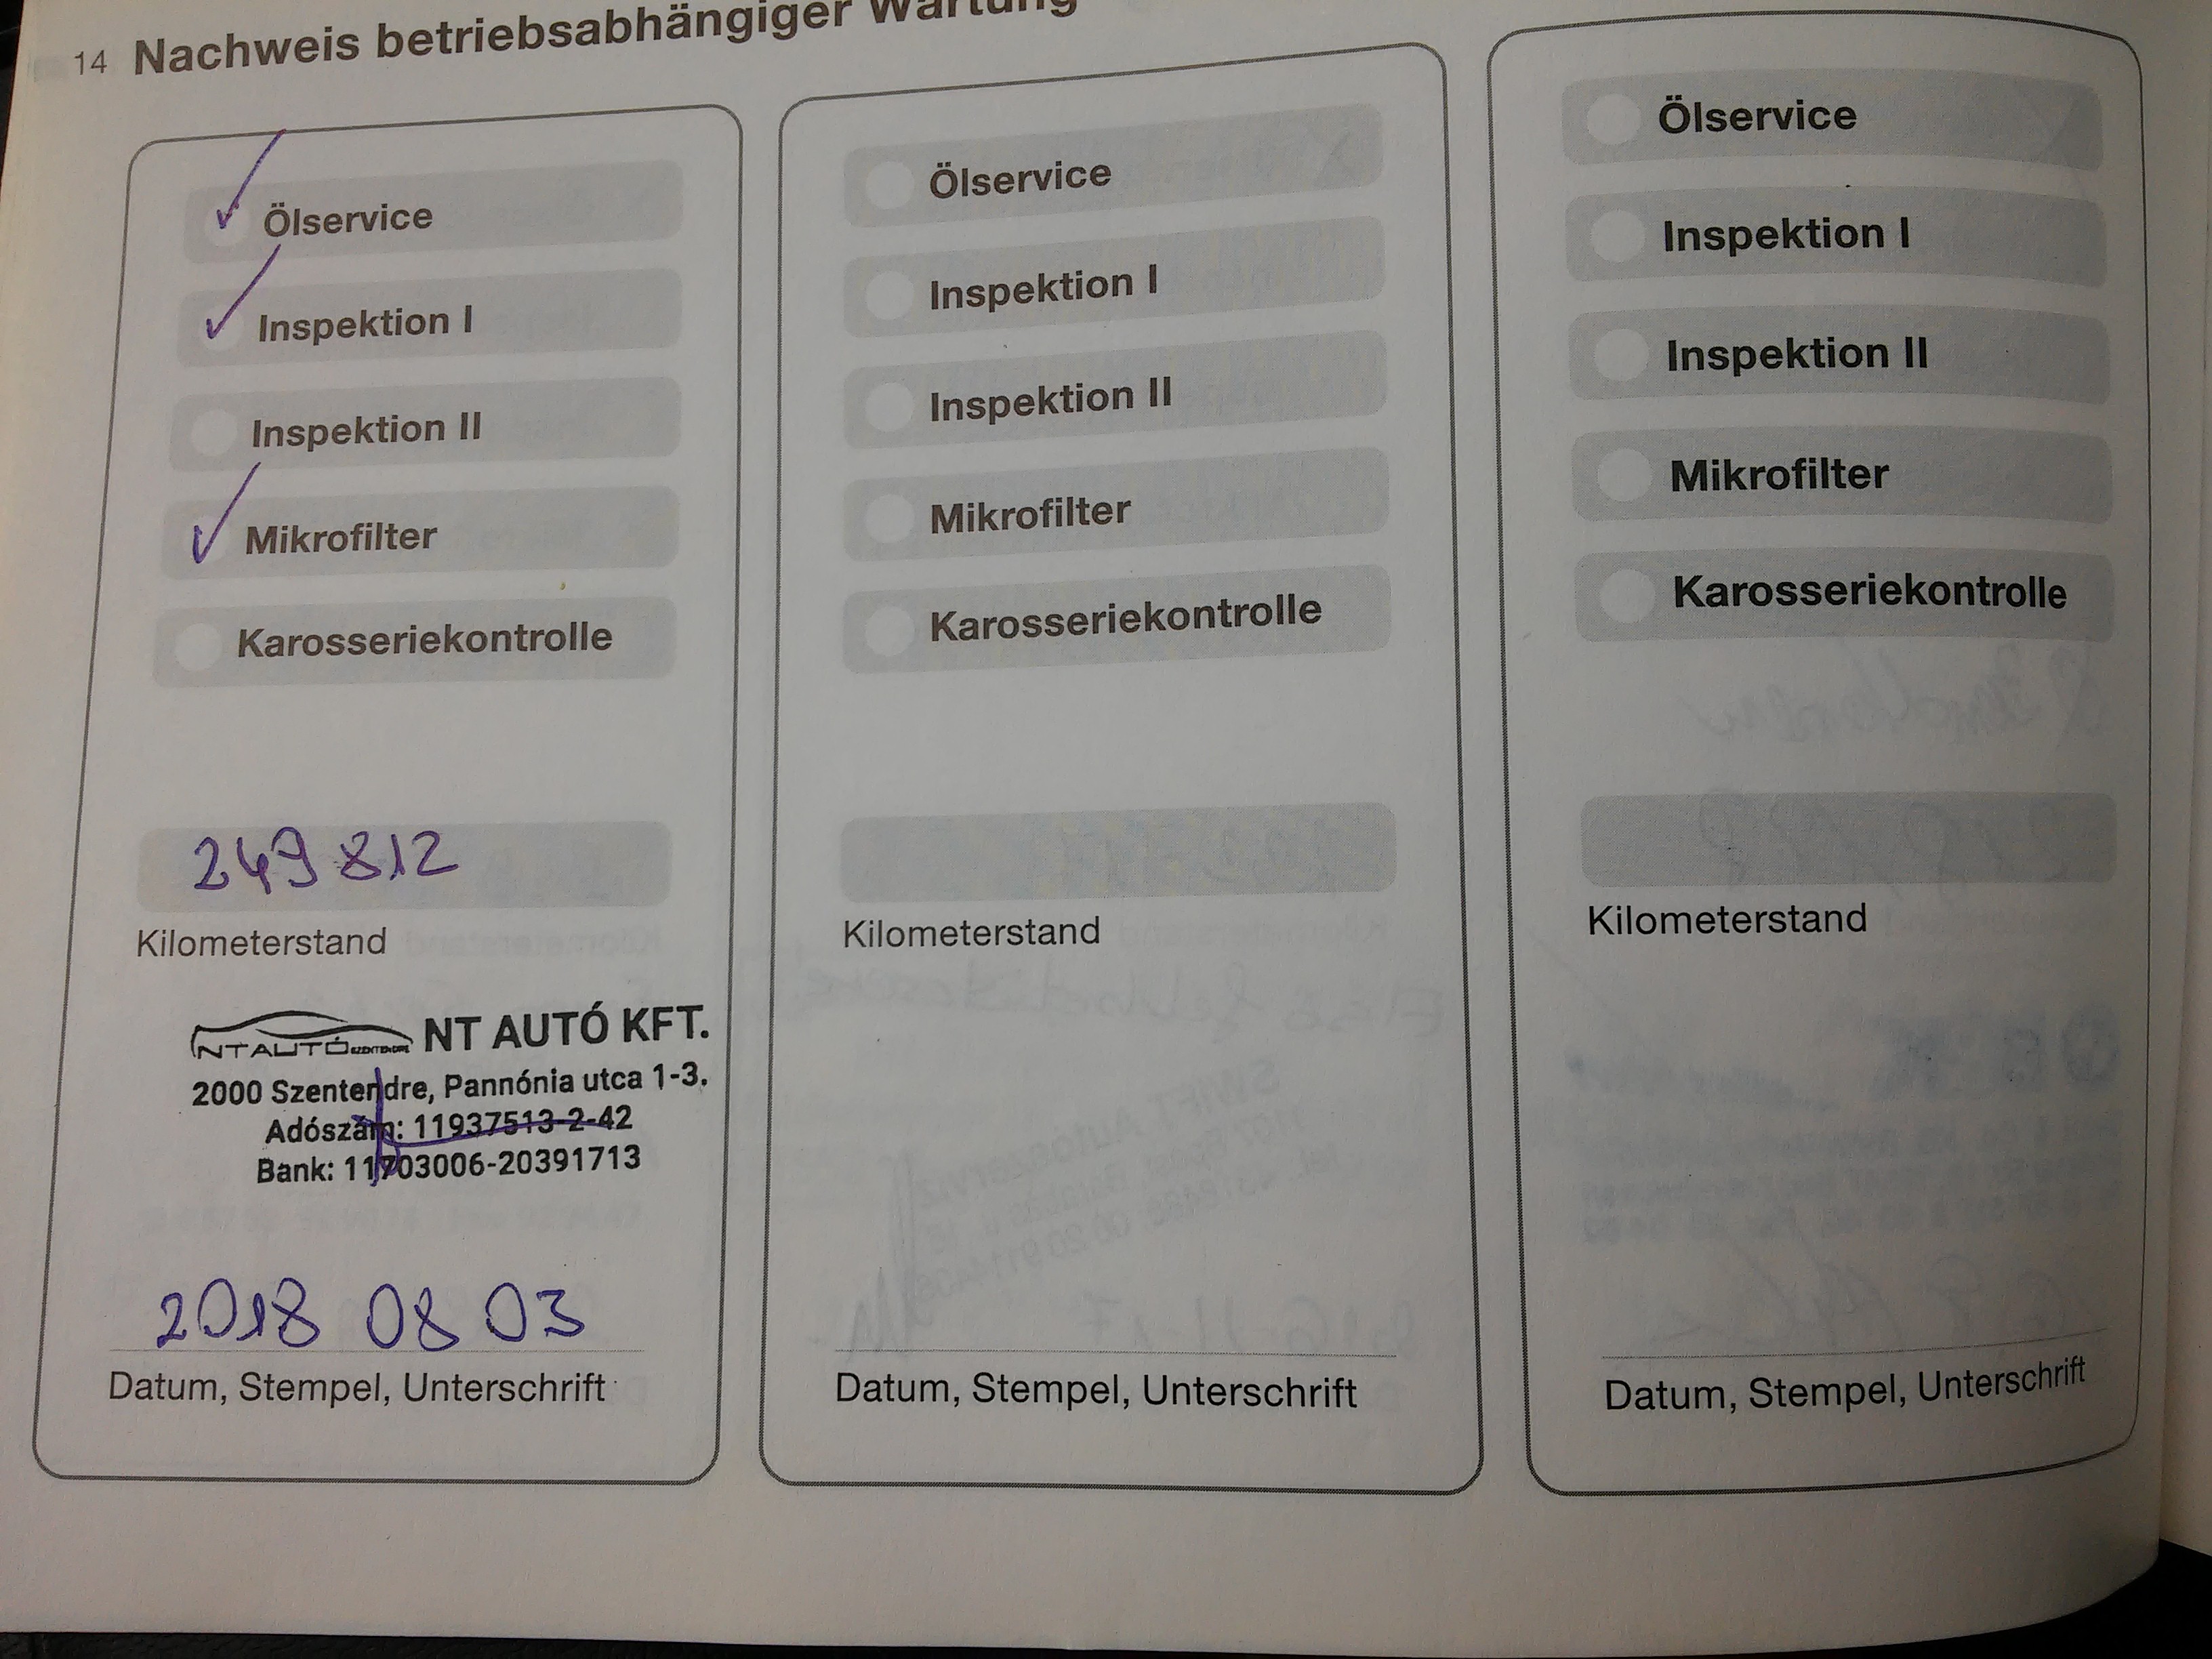 14 Nachweis betriebsabhängiger Wartung
Ölservice
Inspektion I
Inspektion II
Mikrofilter
Karosseriekontrolle
249 812
Kilometerstand
NTAUTÓ SZENTENDRE NT AUTÓ KFT.
2000 Szentendre, Pannónia utca 1-3.
Adószám: 11937513-2-42
Bank: 11703006-20391713
2018 08 03
Datum, Stempel, Unterschrift
Ölservice
Inspektion I
Inspektion II
Mikrofilter
Karosseriekontrolle
Kilometerstand
Datum, Stempel, Unterschrift
Ölservice
Inspektion I
Inspektion II
Mikrofilter
Karosseriekontrolle
Kilometerstand
Datum, Stempel, Unterschrift